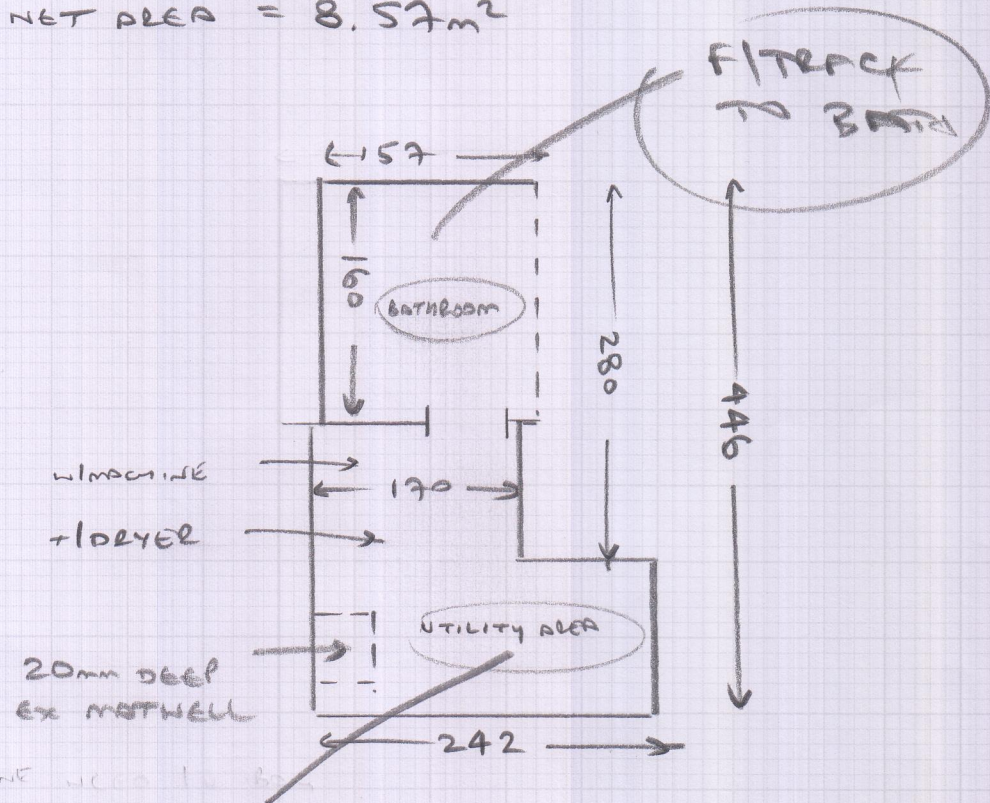 NET AREA = 8.57m²
F/TRACK
TO BATH
157
160
BATHROOM
280
446
W/MACHINE
170
T/DRYER
UTILITY AREA
20mm DEEP
EX MATWELL
242
NEED